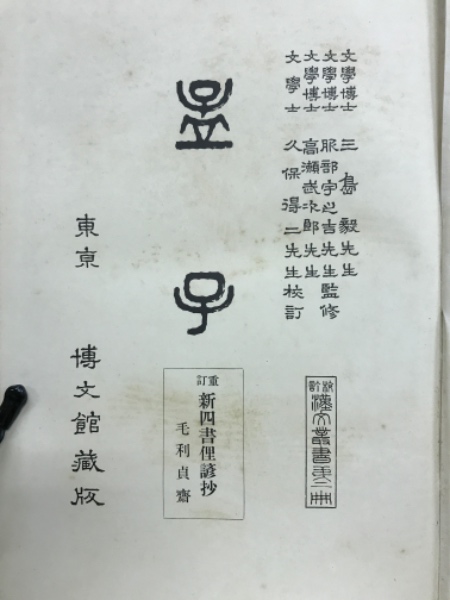 文學博士 三島毅先生
文學博士 服部宇之吉先生監修
文學博士 高瀬武次郎先生
文學士 久保得二先生校訂
註釋漢文叢書第二冊
孟子
重訂 新四書俚諺抄
毛利貞齋
東京 博文館藏版